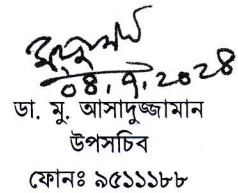 ০৪.৭.২০২৪
ডা. মু. আসাদুজ্জামান
উপসচিব
ফোনঃ ৯৫১১১৮৮